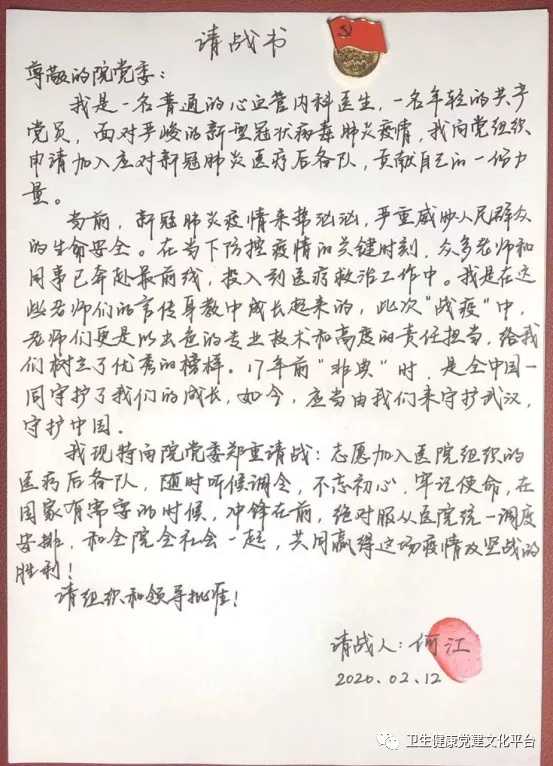 请战书
尊敬的院党委：
我是一名普通的心血管内科医生，一名年轻的共产
党员，面对严峻的新型冠状病毒肺炎疫情，我向党组织
申请加入应对新冠肺炎医疗后备队，贡献自己的一份力
量。
当前，新冠肺炎疫情来势汹汹，严重威胁人民群众
的生命安全。在当下防控疫情的关键时刻，众多老师和
同事已奔赴最前线，投入到医疗救治工作中。我是在这
些老师们的言传身教中成长起来的，此次“战疫”中，
老师们更是以出色的专业技术和高度的责任担当，给我
们树立了优秀的榜样。17年前“非典”时，是全中国一
同守护了我们的成长，如今，应当由我们来守护武汉，
守护中国。
我现特向院党委郑重请战：志愿加入医院组织的
医疗后备队，随时听候调令，不忘初心，牢记使命，在
国家有需要的时候，冲锋在前，绝对服从医院统一调度
安排，和全院全社会一起，共同赢得这场疫情攻坚战的
胜利！
请组织和领导批准！
请战人：何江
2020.02.12
卫生健康党建文化平台